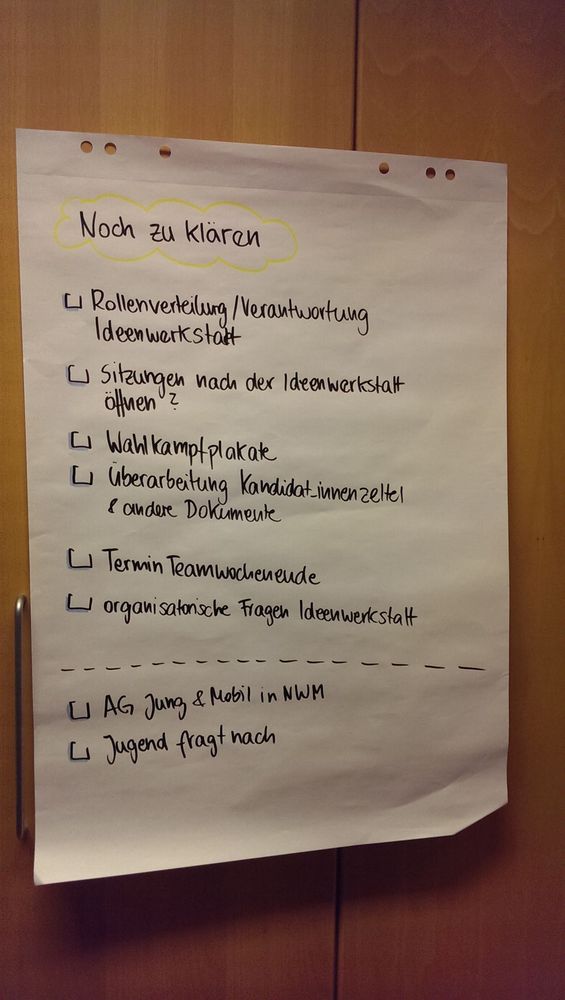 Noch zu klären
Rollenverteilung/Verantwortung
Ideenwerkstatt
Sitzungen nach der Ideenwerkstatt
öffnen?
Wahlkampfplakate
Überarbeitung Kandidat_innenzettel
& andere Dokumente
Termin Teamwochenende
organisatorische Fragen Ideenwerkstatt
AG Jung & Mobil in NWM
Jugend fragt nach